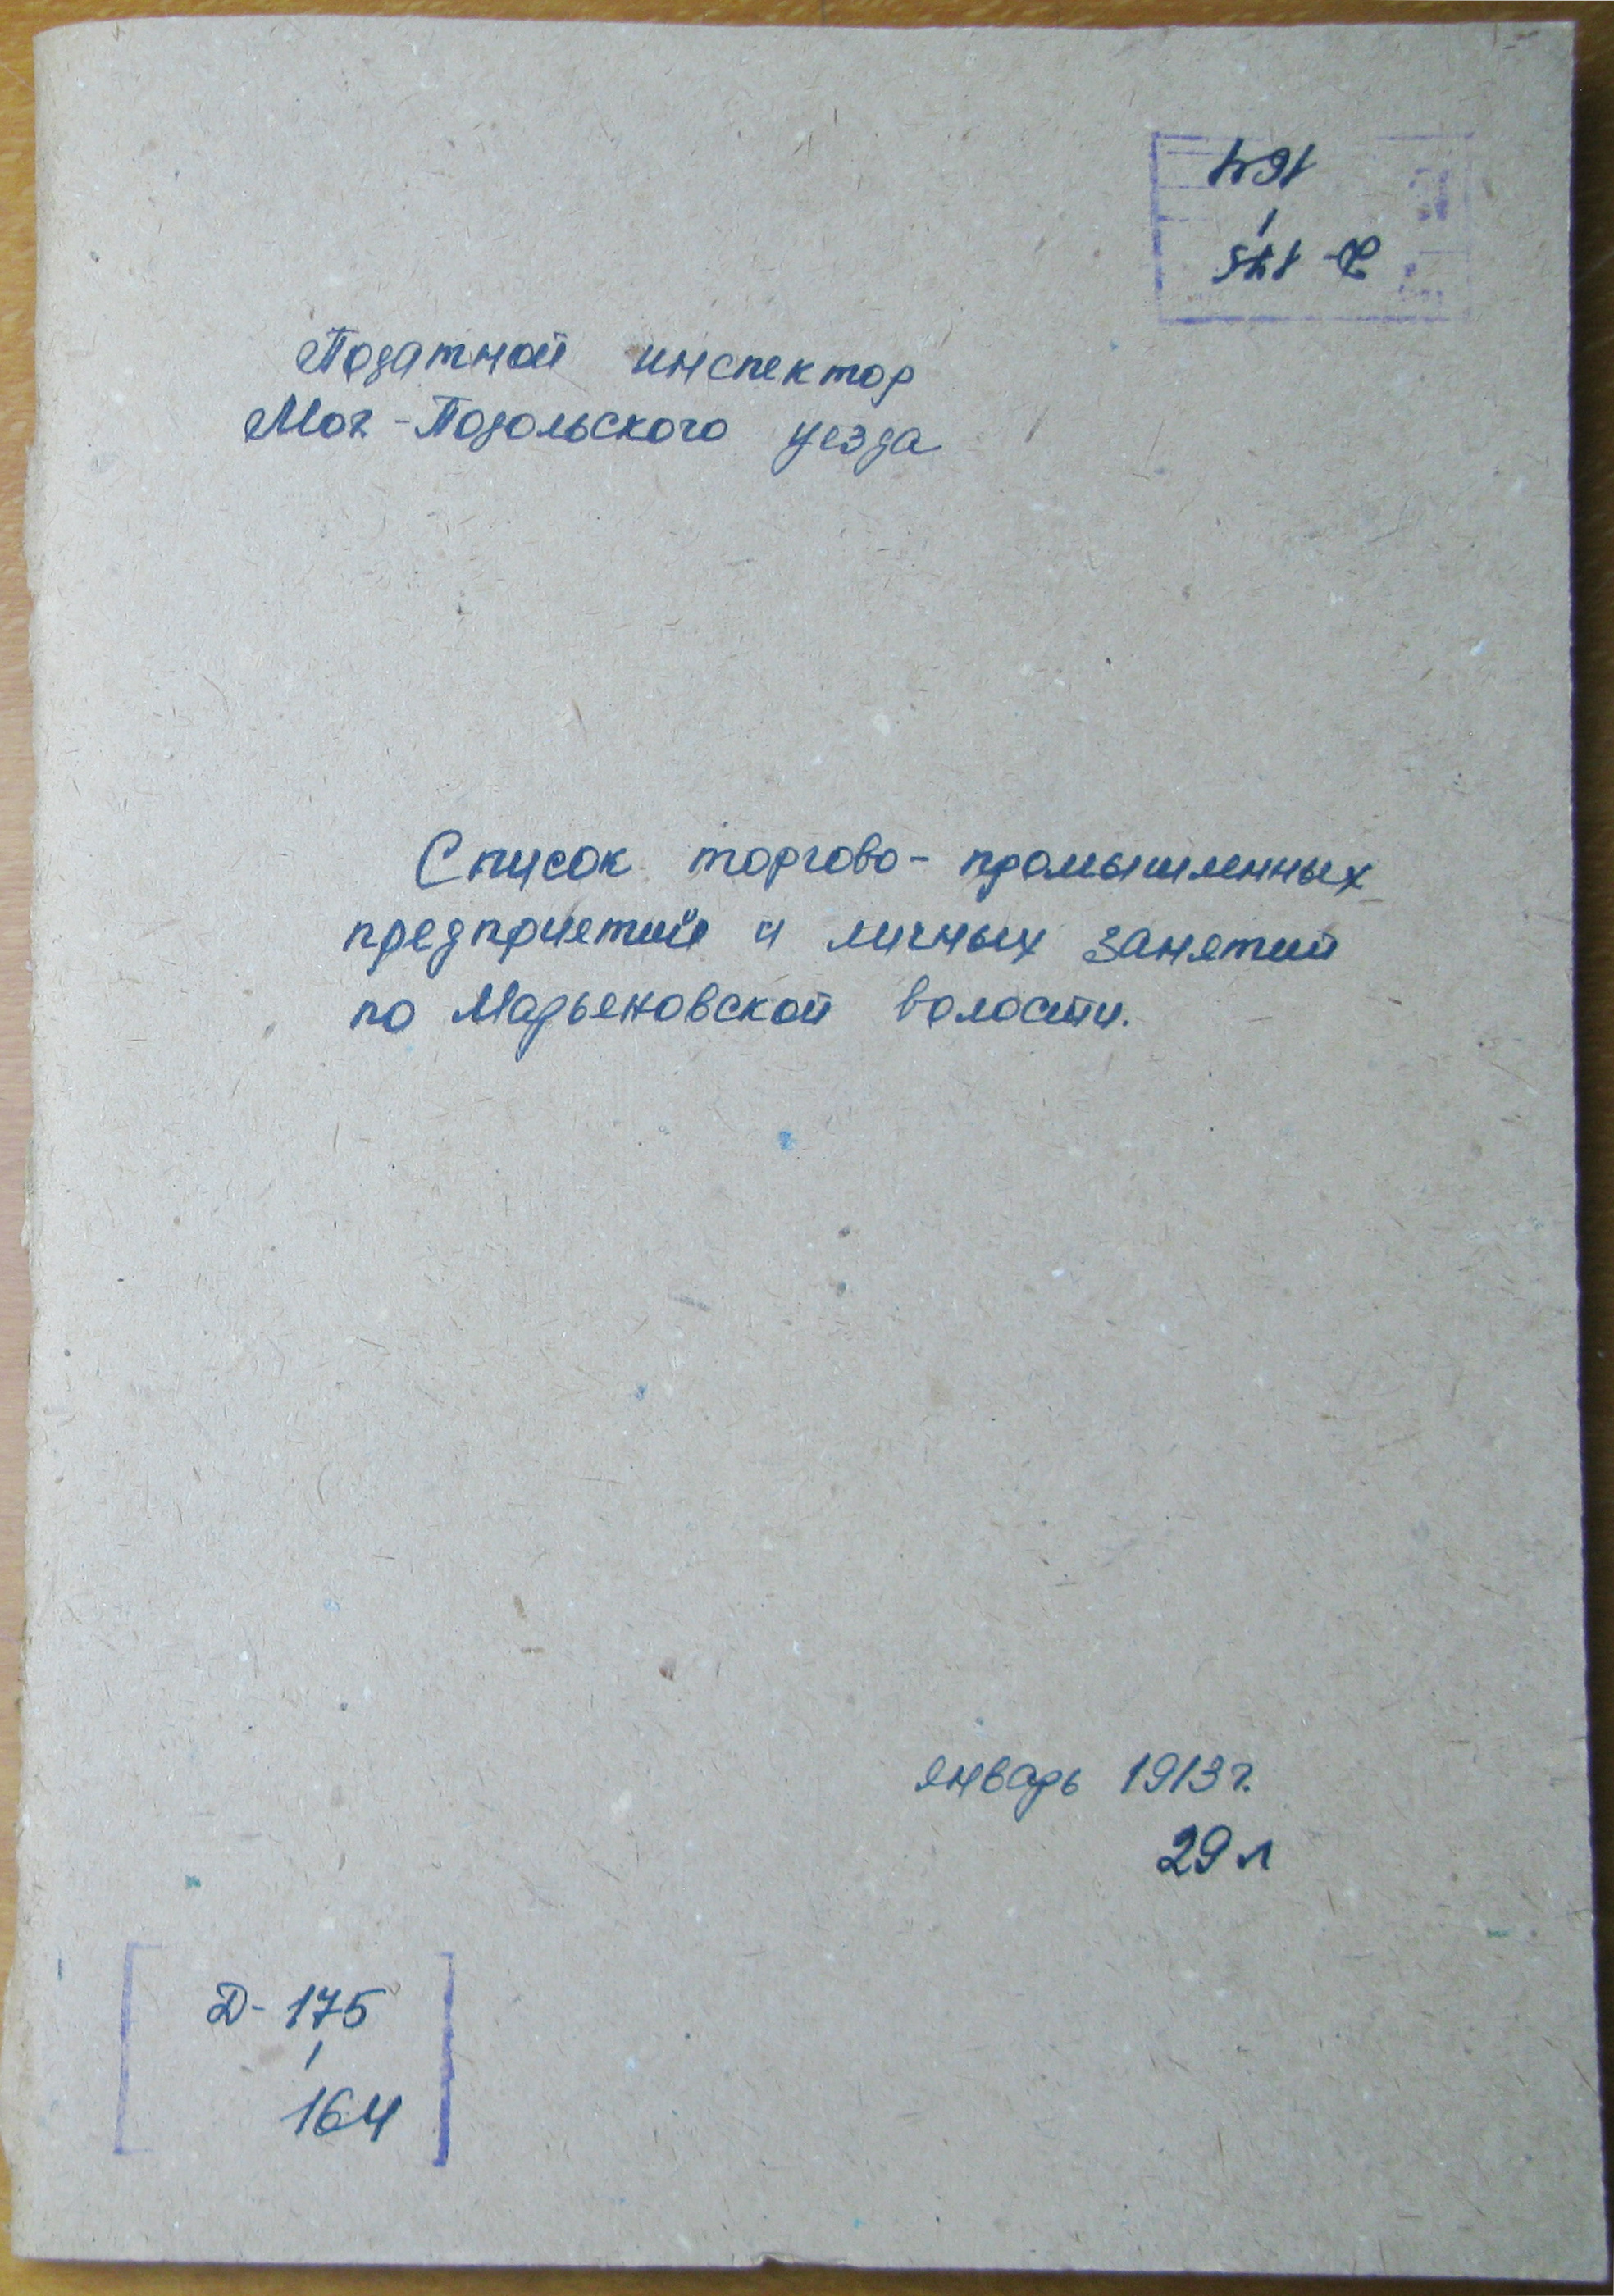 164
Д-175
Податной инспектор
Мог-Подольского уезда
Список торгово-промышленных
предприятий и личных занятий
по Марьяновской волости.
январь 1913 г.
29 л
Д-175
164